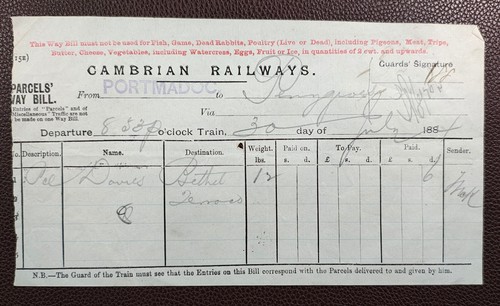 This Way Bill must not be used for Fish, Game, Dead Rabbits, Poultry (Live or Dead), including Pigeons, Meat, Tripe,
Butter, Cheese, Vegetables, including Watercress, Eggs, Fruit or Ice, in quantities of 2 cwt. and upwards.
(152)
CAMBRIAN RAILWAYS.
Guards' Signature
PARCELS'
WAY BILL.
PORTMADOC
From to
Entries of "Parcels" and of
Miscellaneous" Traffic are not
be made on one Way Bill.
Via
Departure 8.33 o'clock Train, 30 day of July 188
Description. Name. Destination. Weight Paid on. To Pay. Paid. Sender.
lbs. s. d. £ s. d. £ s. d.
Pcl Davies Bethel 12 6
Terrace
N.B.—The Guard of the Train must see that the Entries on this Bill correspond with the Parcels delivered to and given by him.